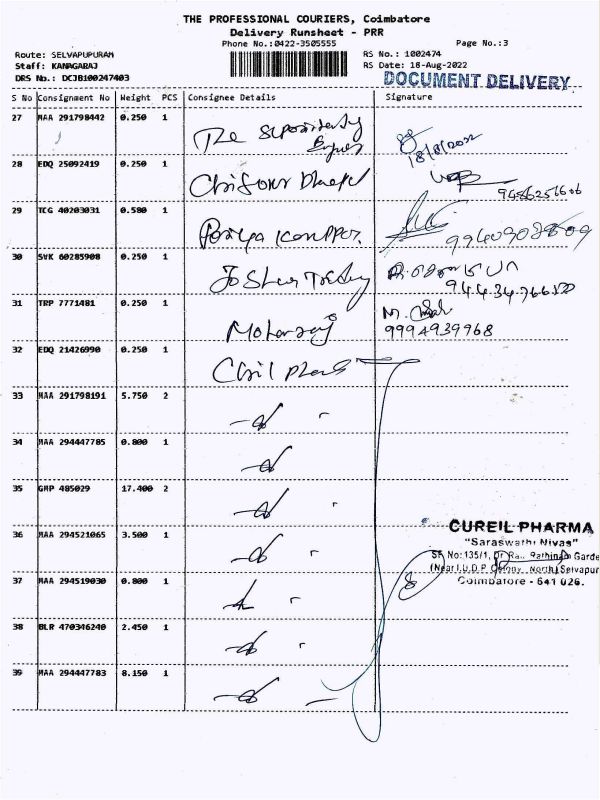 THE PROFESSIONAL COURIERS, Coimbatore
Delivery Runsheet - PRR
Phone No.:0422-3505555
Page No.:3
Route: SELVAPUPURAM
RS No.: 1002474
Staff: KANAGARAJ
RS Date: 18-Aug-2022
DRS No.: DCJB100247403
DOCUMENT DELIVERY
S No Consignment No Weight PCS Consignee Details Signature
27 MAA 291798442 0.250 1 The
18/8/2022
28 EDQ 25092419 0.250 1
9486256606
29 TCG 40203031 0.580 1
30 SVK 60285908 0.250 1
31 TRP 7771481 0.250 1 Mohanraj M.
9994939968
32 EDQ 21426990 0.250 1
33 MAA 291798191 5.750 2
34 MAA 294447785 0.800 1
35 GMP 485029 17.400 2
36 MAA 294521065 3.500 1
37 MAA 294519030 0.800 1
38 BLR 470346240 2.450 1
39 MAA 294447783 8.150 1
CUREIL PHARMA
"Saraswathi Nivas"
SF No: 135/1, Garde
(Near I.U.D.P Colony, North) Selvapur
Coimbatore - 641 026.